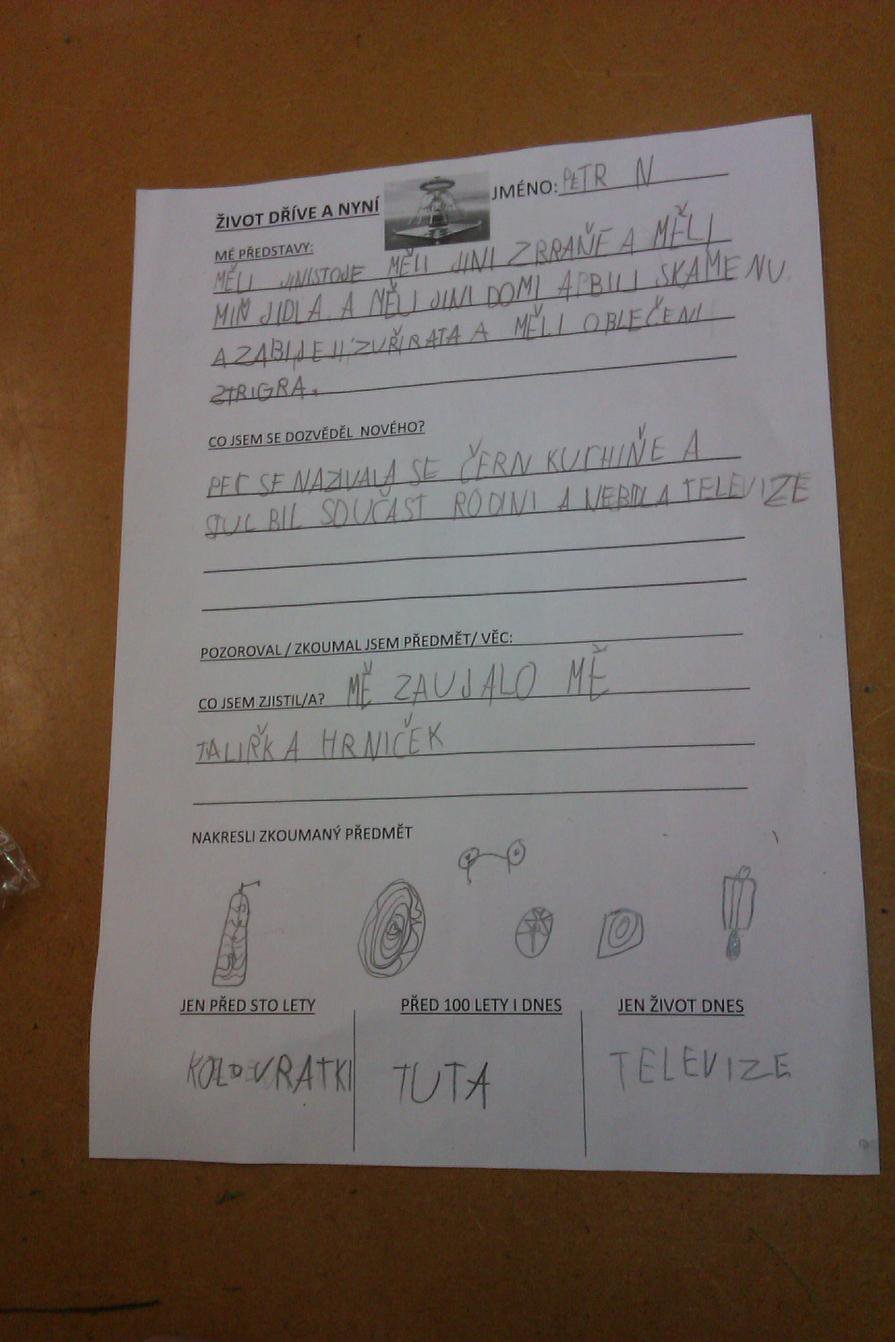 ŽIVOT DŘÍVE A NYNÍ JMÉNO: PETR N
MÉ PŘEDSTAVY:
MĚLI JINISTOJE MĚLI JINI ZBRAŇE A MĚLI
MIŇ JIDLA A MĚLI JINI DOMI A BILI SKAMENU
A ZABIJEJI ZUŘIRATA A MĚLI OBLEČENI
ZTRIGRA.
CO JSEM SE DOZVĚDĚL NOVÉHO?
PEC SE NAZIVALA SE ČERN KUCHIŇE A
STUL BIL SOUČAST RODINI A NEBILA TELEVIZE
POZOROVAL / ZKOUMAL JSEM PŘEDMĚT/ VĚC:
CO JSEM ZJISTIL/A? MĚ ZAUJALO MĚ
TALIŘK A HRNIČEK
NAKRESLI ZKOUMANÝ PŘEDMĚT
JEN PŘED STO LETY PŘED 100 LETY I DNES JEN ŽIVOT DNES
KOLOVRATKI TUTA TELEVIZE